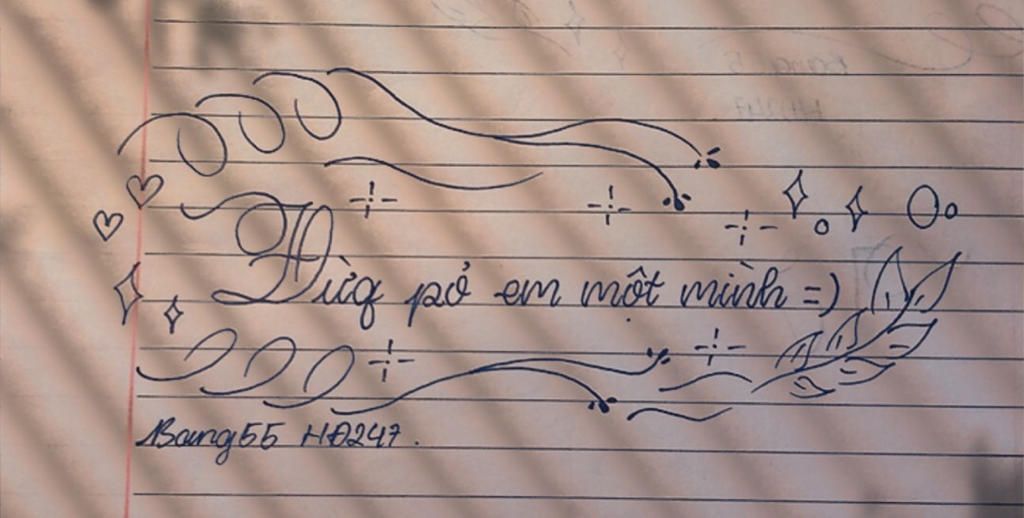 Đừq pỏ em một mình =)
Bang55 HĐ247.